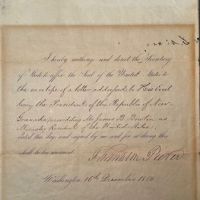 I hereby authorize and direct the Secretary
of State to affix the Seal of the United States to
the envelope of a letter addressed to His Excel
lency the President of the Republic of New
Granada, Mr. James B. Bowlin as
Minister Resident of the United States
dated this day and signed by me and for so doing this
shall be his warrant.
Franklin Pierce
Washington, 16th December, 185